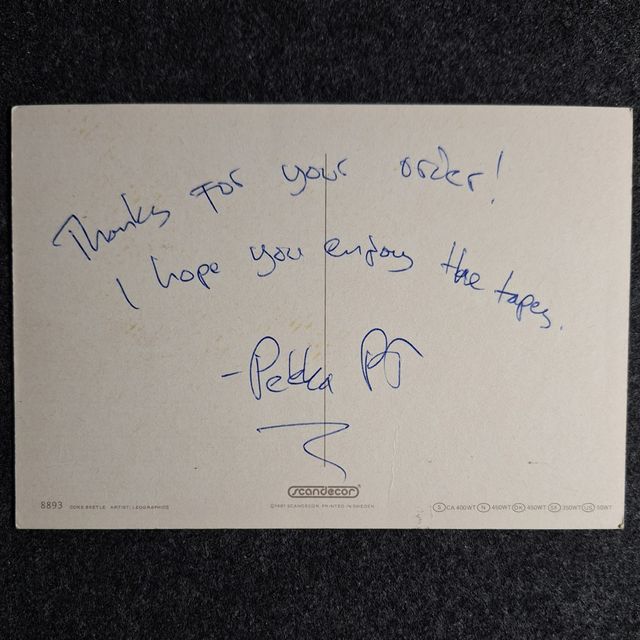 Thanks for your order!
I hope you enjoy the tapes.
- Pekka PT
scandecor
8893 COKE BEETLE ARTIST: LEOGRAPHICS
©1981 SCANDECOR PRINTED IN SWEDEN
S CA 400WT N 450WT DK 450WT SF 350WT US 50WT